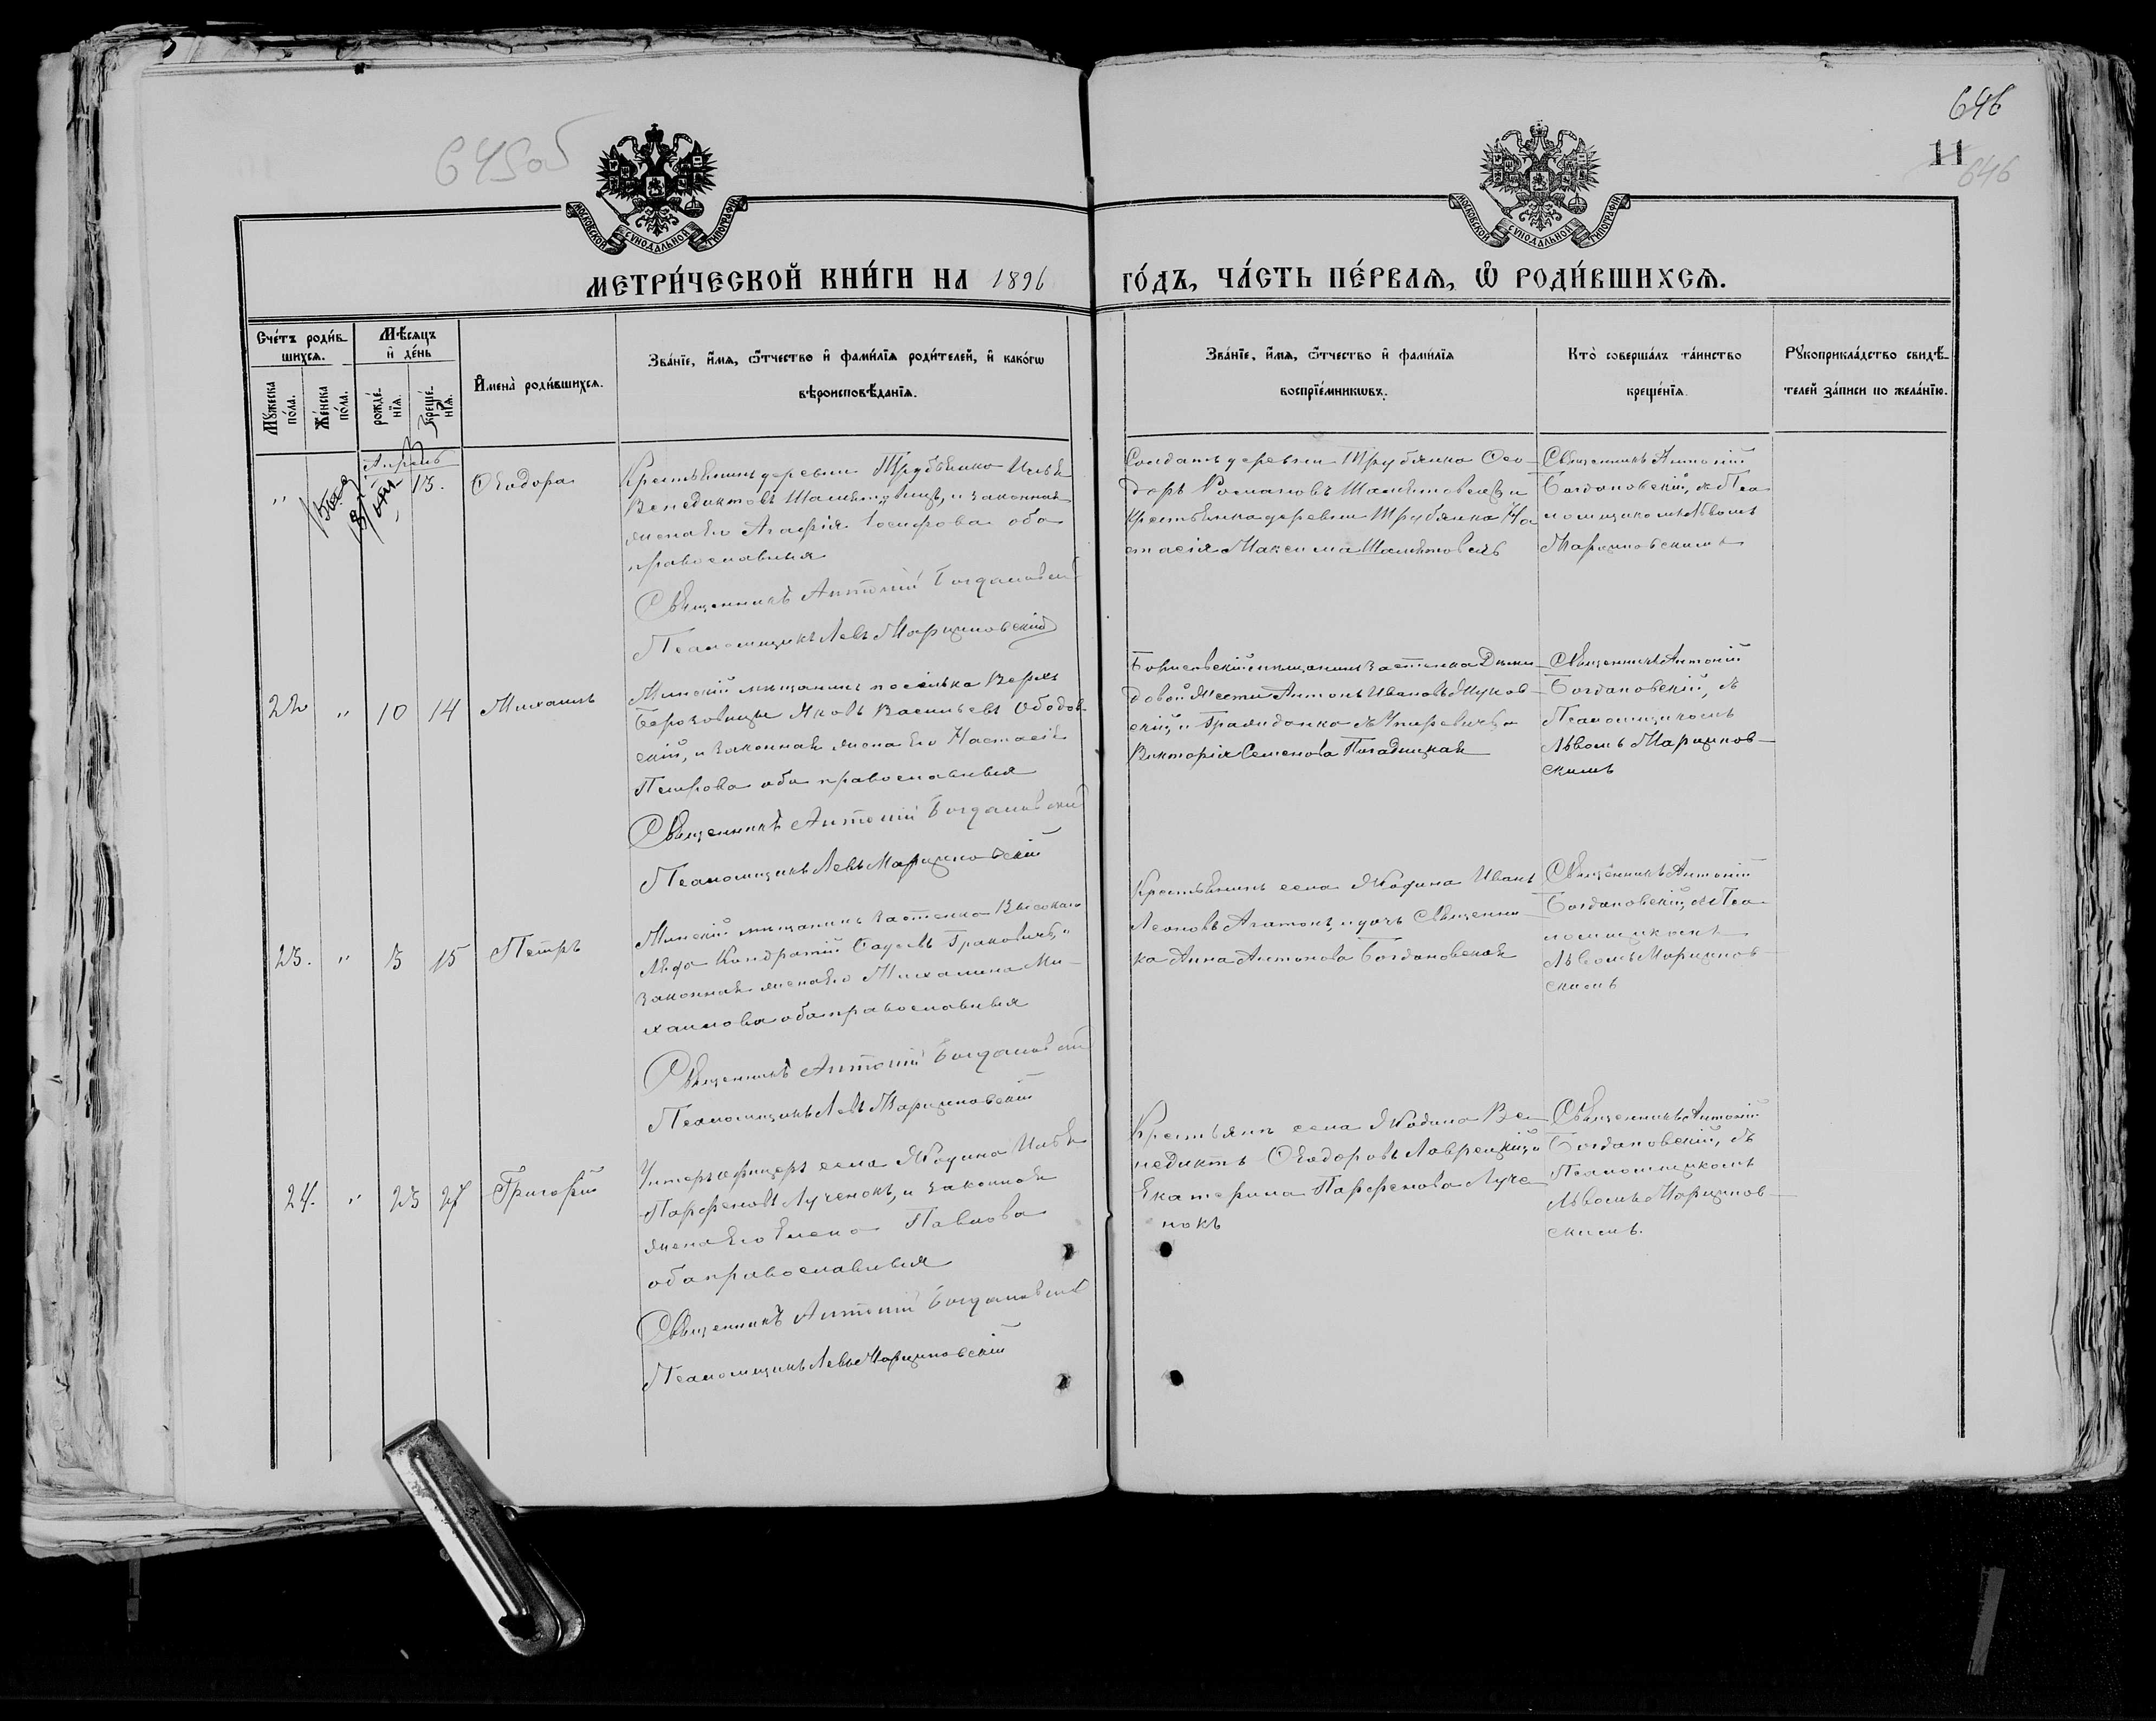 645об
646
11
646
МОСКОВСКОЙ СѴНОДАЛЬНОЙ ТИПОГРАФІИ
МОСКОВСКОЙ СѴНОДАЛЬНОЙ ТИПОГРАФІИ
МЕТРИ́ЧЕСКОЙ КНИ́ГИ НА 1896
ГО́ДЪ, ЧА́СТЬ ПЕ́РВАѦ, Ѡ РОДИ́ВШИХСѦ.
Сче́тъ роди́в-
шихсѧ.
Мꙋ́жеска
по́ла.
Же́нска
по́ла.
Мѣ́сѧцъ
и҆ де́нь
рожде́-
нїѧ.
креще́-
нїѧ.
И҆мена̀ роди́вшихсѧ.
Зва́нїе, и҆́мѧ, ѻ҆́тчество и҆ фами́лїѧ роди́телей, и҆ како́гѡ
вѣроисповѣ́данїѧ.
Зва́нїе, и҆́мѧ, ѻ҆́тчество и҆ фами́лїѧ
воспрїе́мникѡвъ.
Кто̀ соверша́лъ та́инство
креще́нїѧ.
Рꙋкоприкла́дство свидѣ́-
телей за́писи по жела́нїю.
Апрель
" 13. Ѳеодора
Крестьянинъ деревни Трубянка Илья
Венедиктовъ и законная
жена его Агафія Іосифова оба
православныя
Священникъ Антоній Богдановскій
Псаломщикъ Левъ Марциновскій
Солдатъ деревни Трубянка Ѳео-
доръ Романовъ и
Крестьянка деревни Трубянка На-
стасія Максима
Священникъ Антоній
Богдановскій, съ Пса-
ломщикомъ Львомъ
Марциновскимъ
22 " 10 14 Михаилъ
Минскій мещанинъ поселька Верхъ
Березовицы Яковъ Васильевъ Ободов-
скій, и законная жена его Настасія
Петрова оба православныя
Священникъ Антоній Богдановскій
Псаломщикъ Левъ Марциновскій
Борисовскій мещанинъ застенка
Антонъ Ивановъ Жуков-
скій, и Гражданка
Викторія Семенова
Священникъ Антоній
Богдановскій, съ
Псаломщикомъ
Львомъ Марцинов-
скимъ
23. " 13 15 Петръ
Минскій мещанинъ застенка Высокаго
Ляда Кондратій Граковичъ, и
законная жена его Михалина Ми-
хаилова оба православныя
Священникъ Антоній Богдановскій
Псаломщикъ Левъ Марциновскій
Крестьянинъ села Жодина Иванъ
Леоновъ Агатонъ, и дочь Священни-
ка Анна Антонова Богдановская
Священникъ Антоній
Богдановскій, съ Пса-
ломщикомъ
Львомъ Марцинов-
скимъ
24. " 23 27 Григорій
Унтеръ офицеръ села Жодина Илья
Парфеновъ Лученокъ, и законная
жена его Елена Павлова
оба православныя
Священникъ Антоній Богдановскій
Псаломщикъ Левъ Марциновскій
Крестьянъ села Жодина Ве-
недиктъ Ѳеодоровъ Лаврецкій и
Екатерина Парфенова Луче-
нокъ
Священникъ Антоній
Богдановскій, съ
Псаломщикомъ
Львомъ Марцинов-
скимъ.